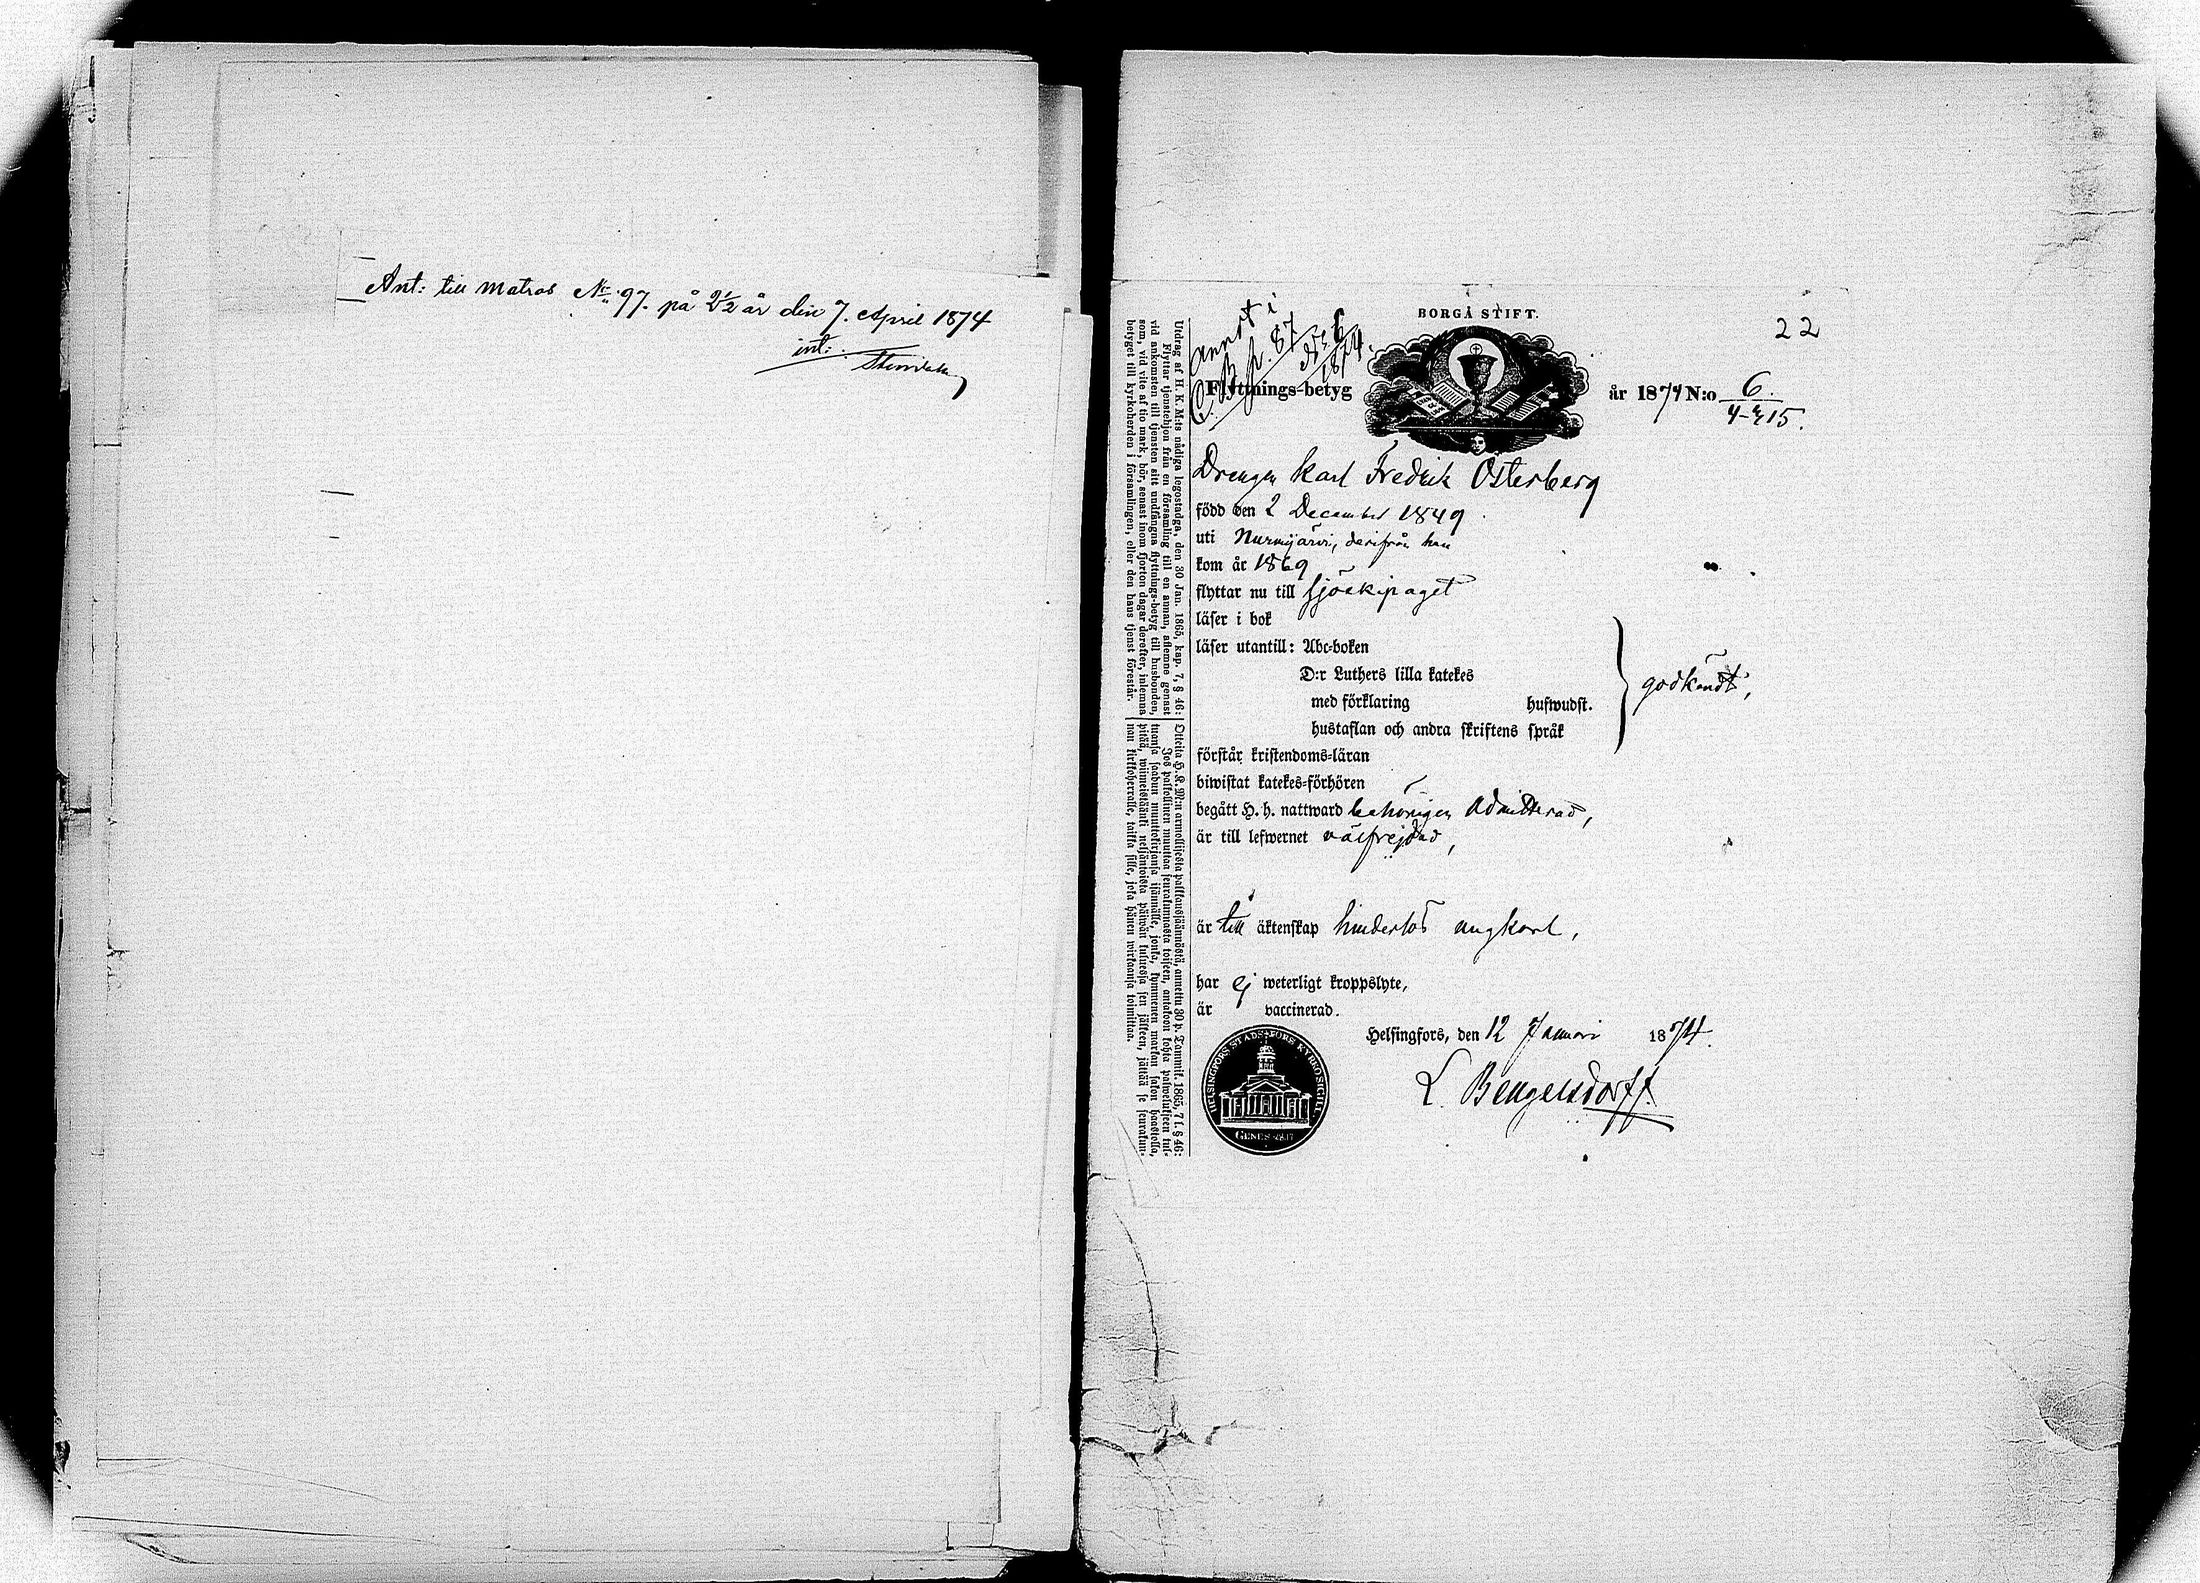 Ant: till Matros No 97. på 2 1/2 år den 7. April 1874
int:
22
BORGÅ STIFT.
annot i
C. B. p. 87
No 6
1874.
Flyttnings-betyg
år 1874 N:o 6.
4-715.
Drengen Karl Fredrik Österberg
född den 2 December 1849
uti Nurmijärvi, derifrån han
kom år 1869
flyttar nu till sjöekipaget
läser i bok
läser utantill: Abc-boken
D:r Luthers lilla katekes
med förklaring
hufwudst.
hustaflan och andra skriftens språk
godkändt,
förstår kristendoms-läran
biwistat katekes-förhören
begått H. h. nattward behörigen admitterad,
är till lefwernet välfrejdad,
är till äktenskap hinderlös ungkarl,
har ej weterligt kroppslyte,
är vaccinerad.
Helsingfors, den 12 Januari 1874.
L. Bengelsdorff.
HELSINGFORS STADS-FÖRS. KYRKO SIGILL
Utdrag af H. K. M:ts nådiga legostadga, den 30 Jan. 1865, kap. 7, § 46:
Flyttar tjenstehjon från en församling till en annan, aflemne genast
vid ankomsten till tjensten sitt undfångna flyttnings-betyg till husbonden,
som, vid vite af tio mark, bör, senast inom fjorton dagar derefter, inlemna
betyget till kyrkoherden i församlingen, eller den hans tjenst förestår.
Otteita H. K. M:n armollisesta palkkaussäännöstä, annettu 30 p. Tammik. 1865, 7 l. § 46:
Jos palkollinen muuttaa seurakunnasta toiseen, antakoon kohta palwelukseen tul-
tuansa saadun muuttokirjansa isännälle, jonka, kymmenen markan sakon haastolla,
pitää, wiimeistäänki neljäntoista päiwän kuluessa sen jälkeen, jättää se seurakun-
nan kirkkoherralle, taikka sille, joka hänen wirkaansa toimittaa.